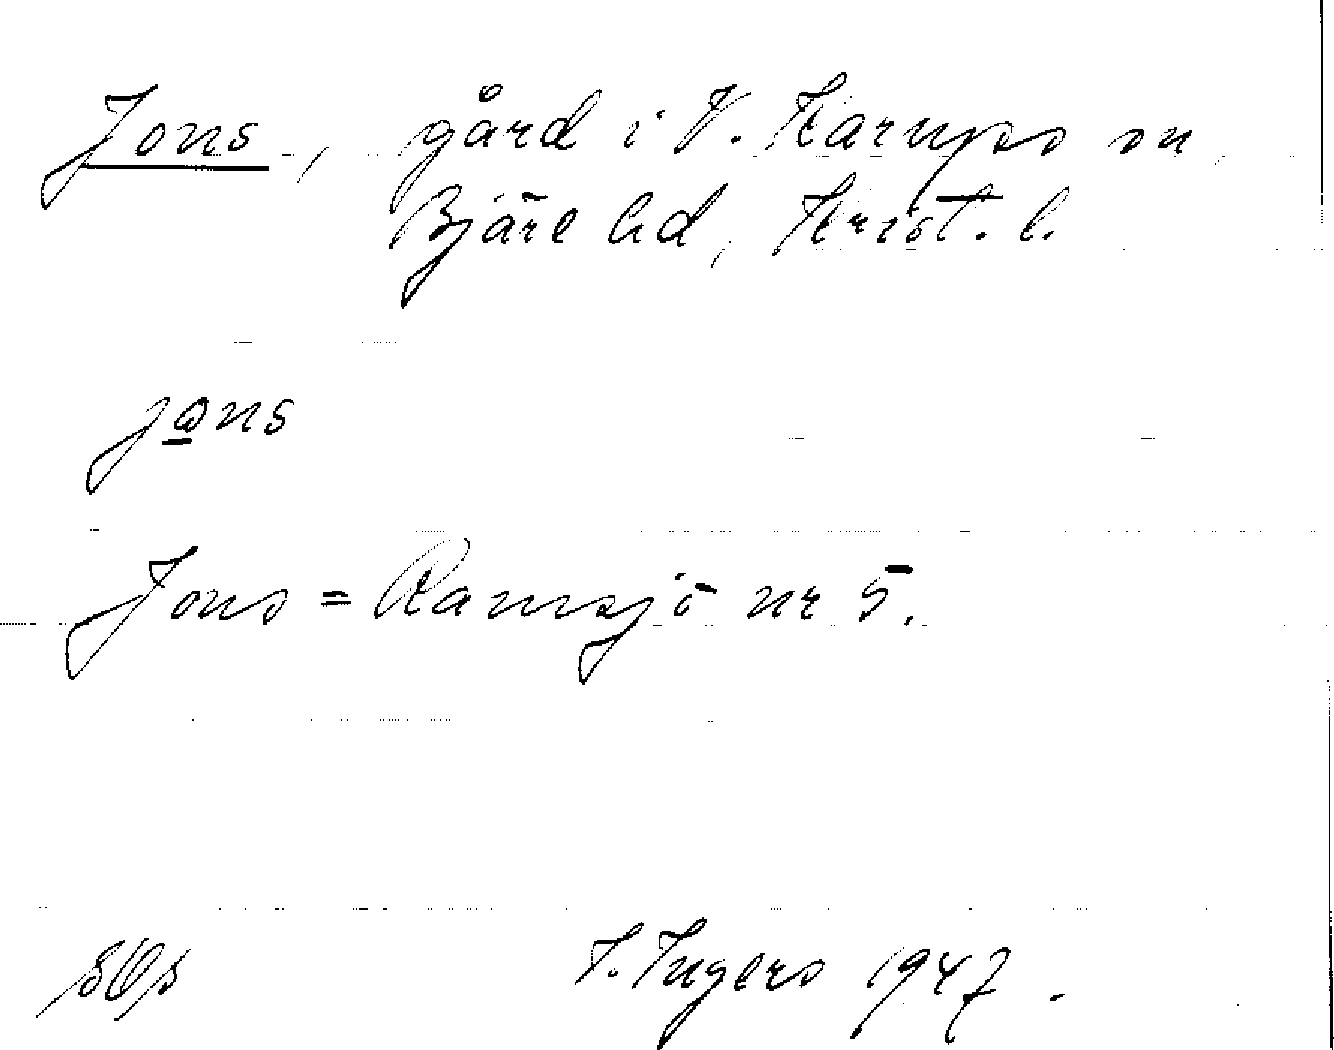 Jons, gård i V. Karups sn,
Bjäre hd, Krist. l.
jɷns
Jons = Ramsjö nr 5.
I. Ingers 1947.